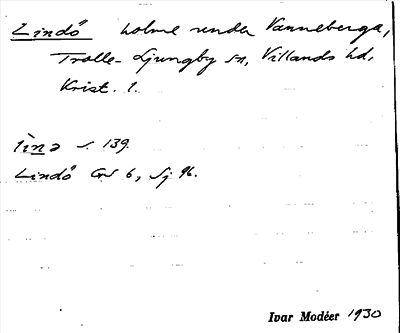 Lindö holme under Vanneberga,
Trolle-Ljungby sn, Villands hd,
Krist. l.
lìnə s. 139.
Lindö GS 6, Sj 96.
Ivar Modéer 1930